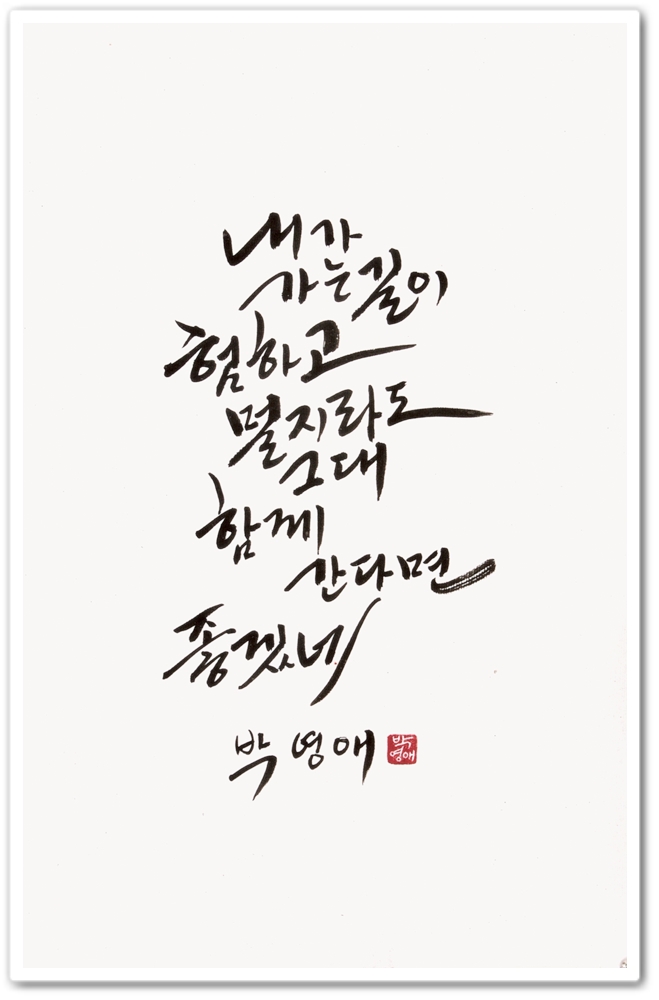 내가
가는 길이
험하고
멀지라도
그대
함께
간다면
좋겠네
박영애
박
영애